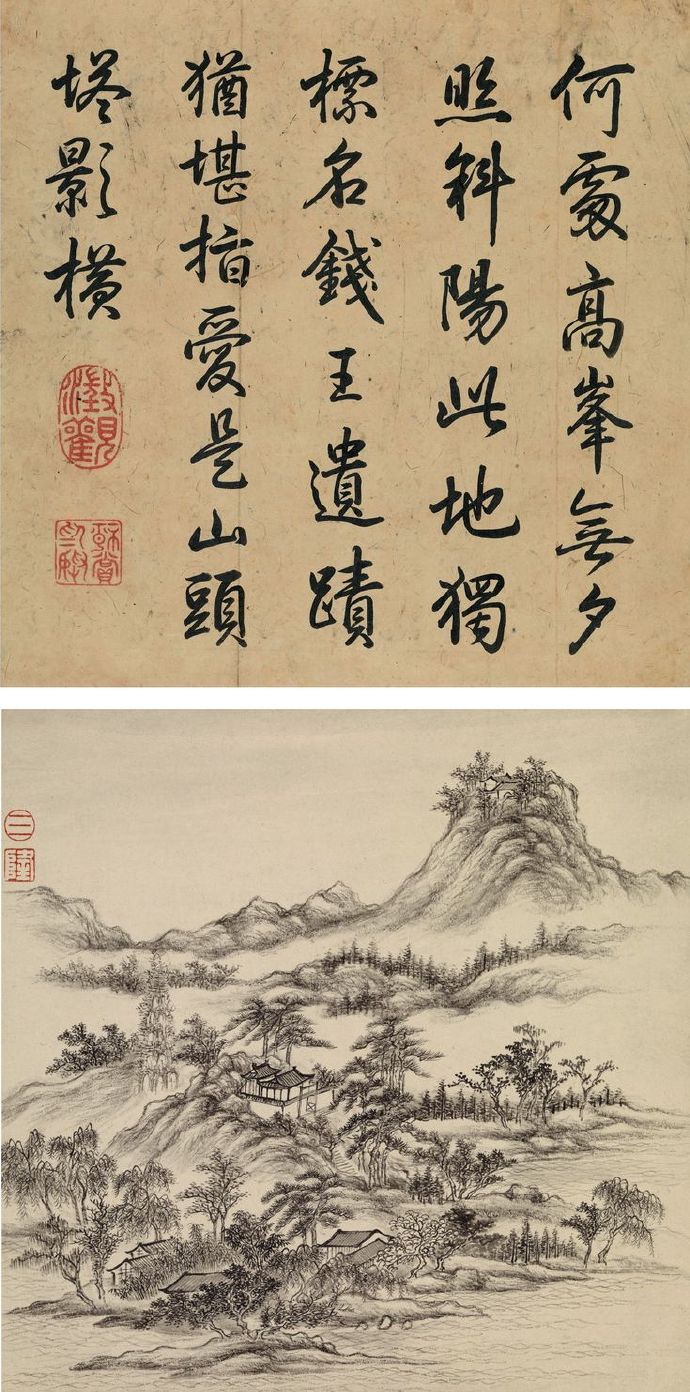 何處高峯無夕
照斜陽此地獨
標名錢王遺蹟
猶堪指愛是山頭
塔影橫
澂觀
☰
隆